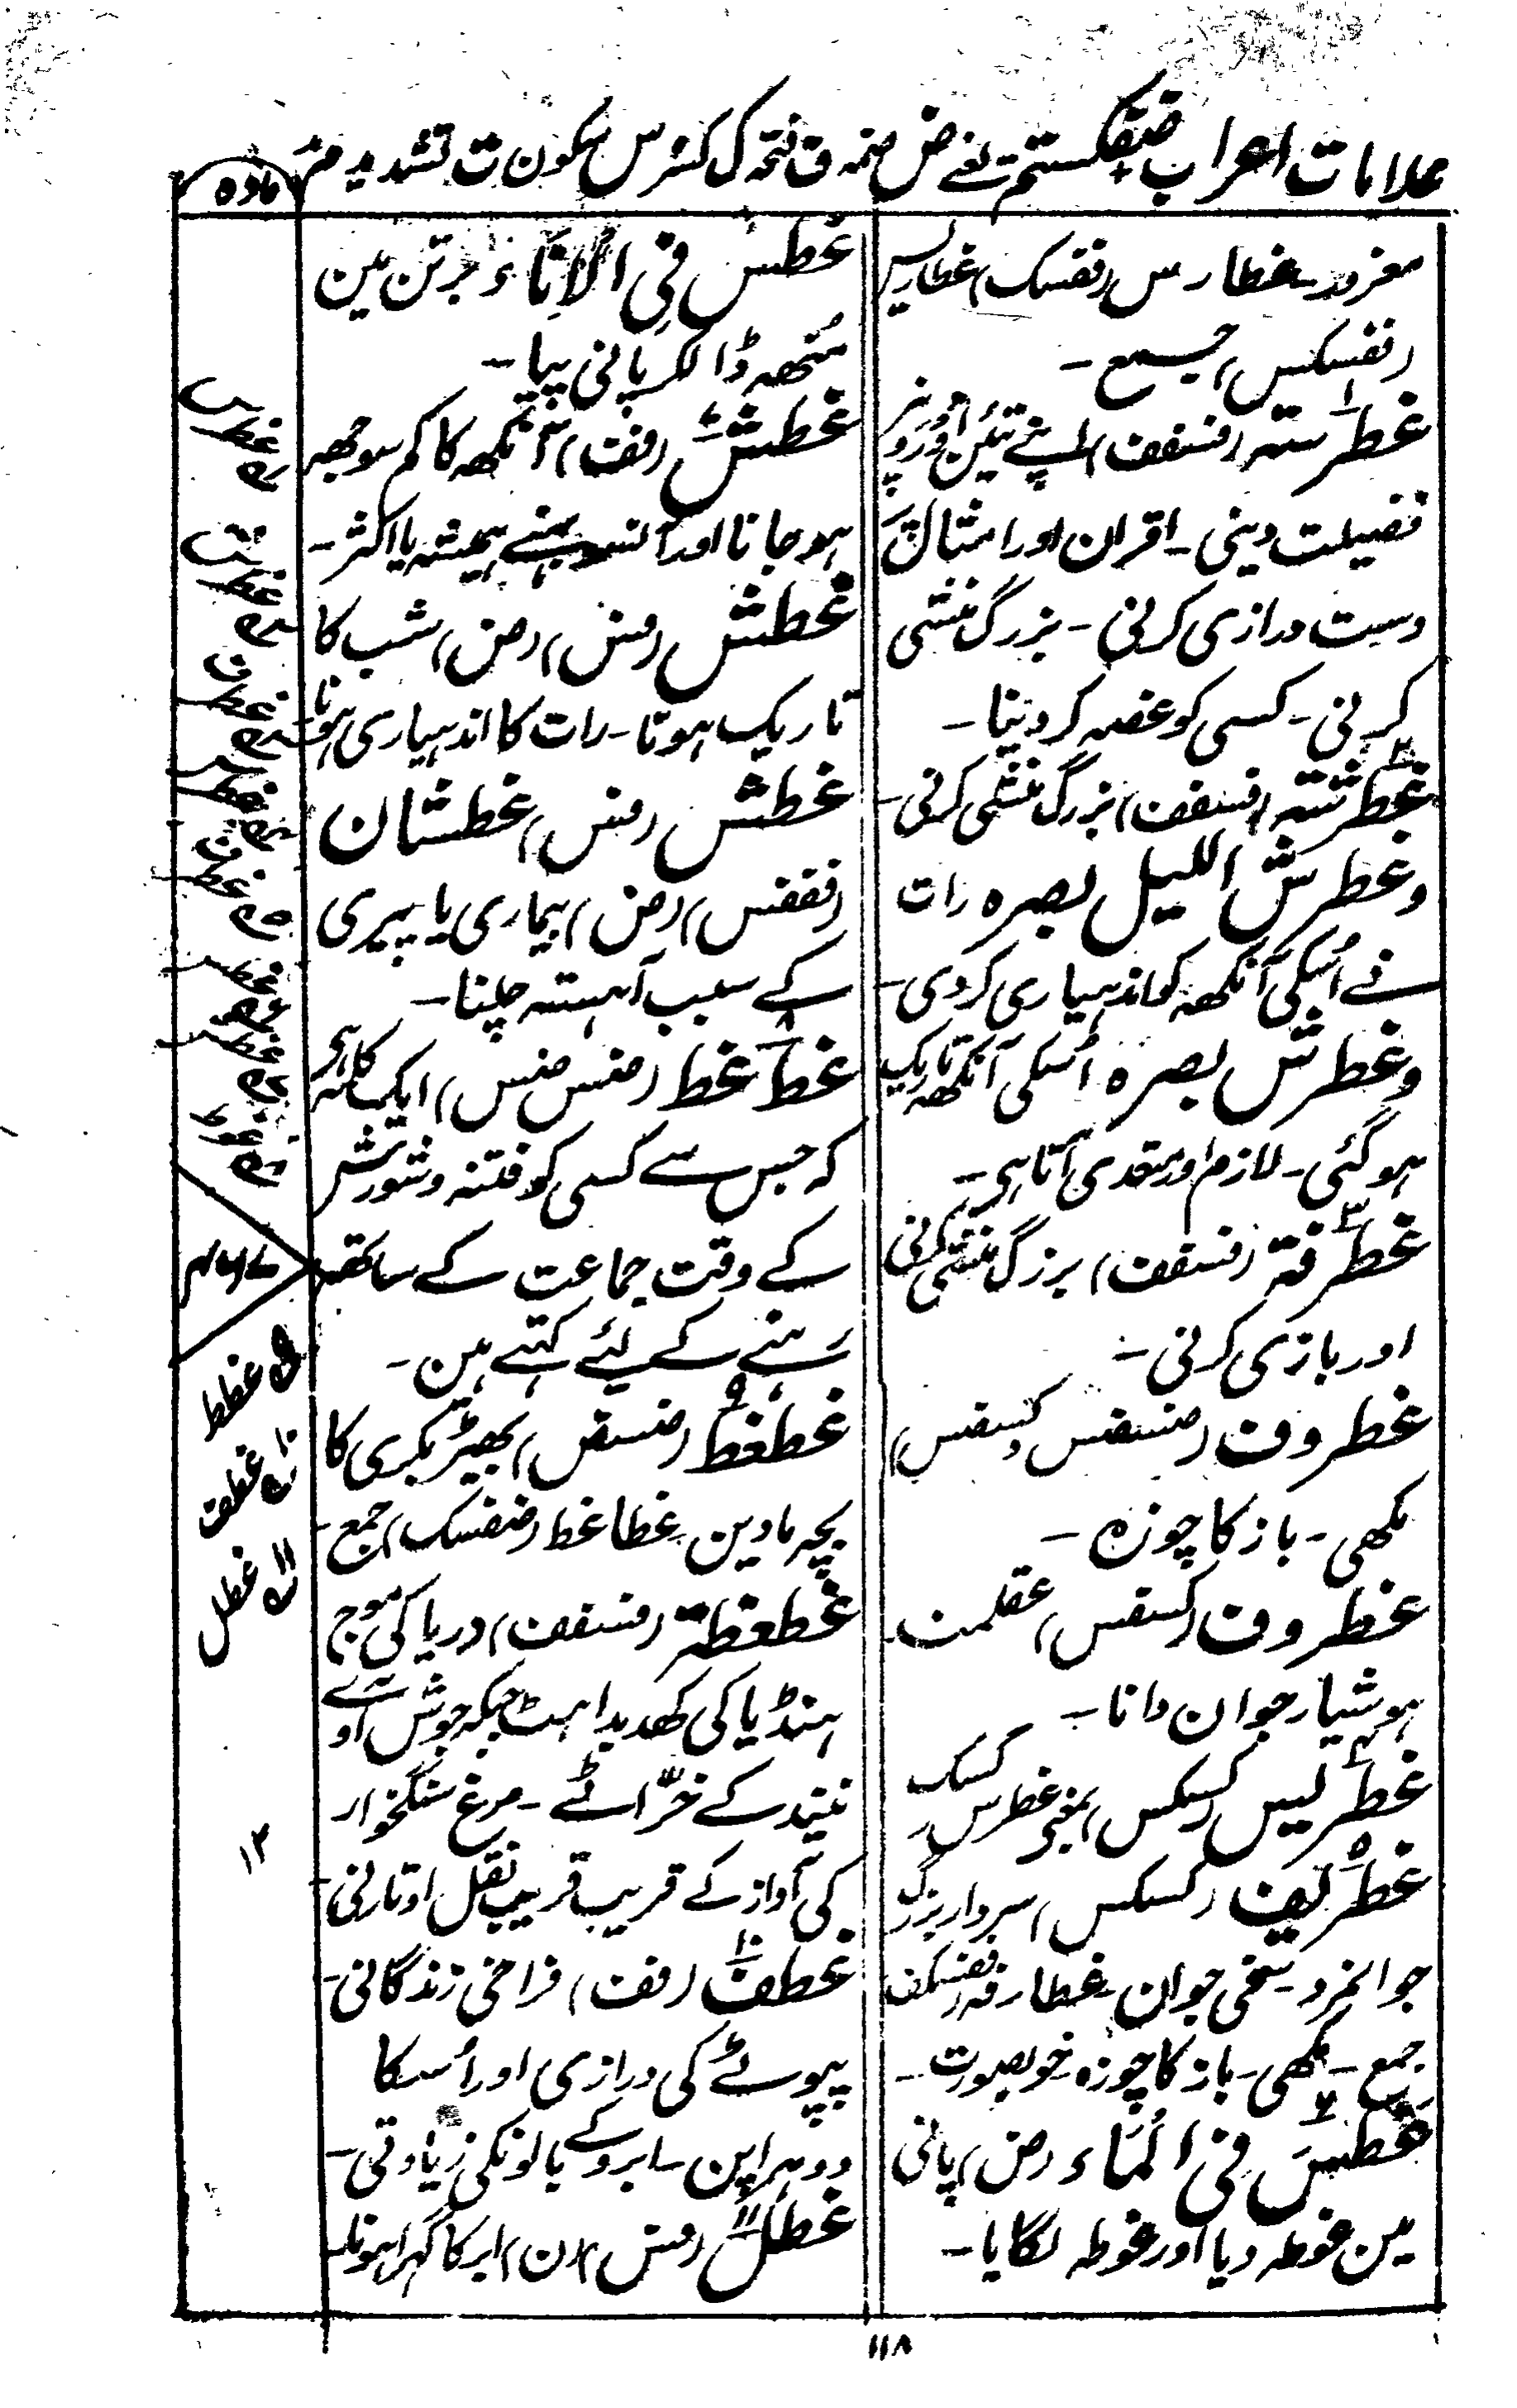 علامات اعراب ضفکستم یعنے ض ضمہ ف فتحہ ک کسرہ س سکون ت تشدید م مد
مادہ
مغرور۔ غطارس (نفسک) غطاریس
(نفسکس) جمع۔
غطرستہ (فسففت) اپنے تئین اورونپر
فضیلت دینی۔ اقران اور امثال پر
دست درازی کرنی۔ بزرگ منشی
کرنی۔ کسی کو غصہ کر دینا۔
غطرشتہ (فسففت) بزرگ منشی کرنی۔
وغطرش اللیل بصرہ رات
نے اُسکی آنکھہ کو اندہیاری کردی۔
وغطرش بصرہ اُسکی آنکھہ تاریک
ہو گئی۔ لازم اور متعدی آتا ہی۔
غطرفۃ (فسففت) بزرگ منشی کرنی
اور بازی کرنی۔
غطروف (ضسفس کسفس)
مکھی۔ باز کا چوزہ۔
غطروف (کسفس) عقلمند
ہوشیار جوان دانا۔
غطریس (کسکس) بمعنی غطرس کسک
غطریف (کسکس) سردار بزرگ
جوانمرد۔ سخی جوان۔ غطارفہ (نفسکف)
جمع۔ مکھی۔ باز کا چوزہ خوبصورت۔
غطسَ فِی الْمَاء (ض) پانی
مین غوطہ دیا اور غوطہ لگایا۔
غطس فِی الْاِنَاء برتن مین
مُنھہ ڈالکر پانی پیا۔
غطش (فف) آنکھہ کا کم سوجھہ
ہو جانا اور آنسو بہنے ہمیشہ یا اکثر۔
غطش (فس) (ض) شب کا
تاریک ہونا۔ رات کا اندہیاری ہونا
غطش (فس) غطشان
(نففس) (ض) بیماری یا پیری
کے سبب آہستہ چلنا۔
غط غط (ضس ضس) ایک کلمہ ہی
کہ جس سے کسی کو فتنہ و شورش
کے وقت جماعت کے ساتھہ
رہنے کے لئے کہتے ہین۔
غطغط (ضسض) بھیڑ بکری کا
بچہ مادین۔ غطاغط (ضفسک) جمع۔
غطغطۃ (فسففت) دریا کی موج
ہنڈیا کی کھدبداہٹ جبکہ جوش آوے
نیند کے خرّاٹے۔ مرغ سنگخوار
کی آواز کے قریب قریب نقل اوتارنی۔
غطف (فف) فراخی زندگانی۔
پپوٹے کی درازی اور اُسکا
دوہراپن۔ ابرو کے بالونکی زیادتی۔
غطل (فس) (ن) ابر کا گہرا ہونا۔
غطط
۱۰ غطف
۱۱ غطل
۱۲
۱۱۸